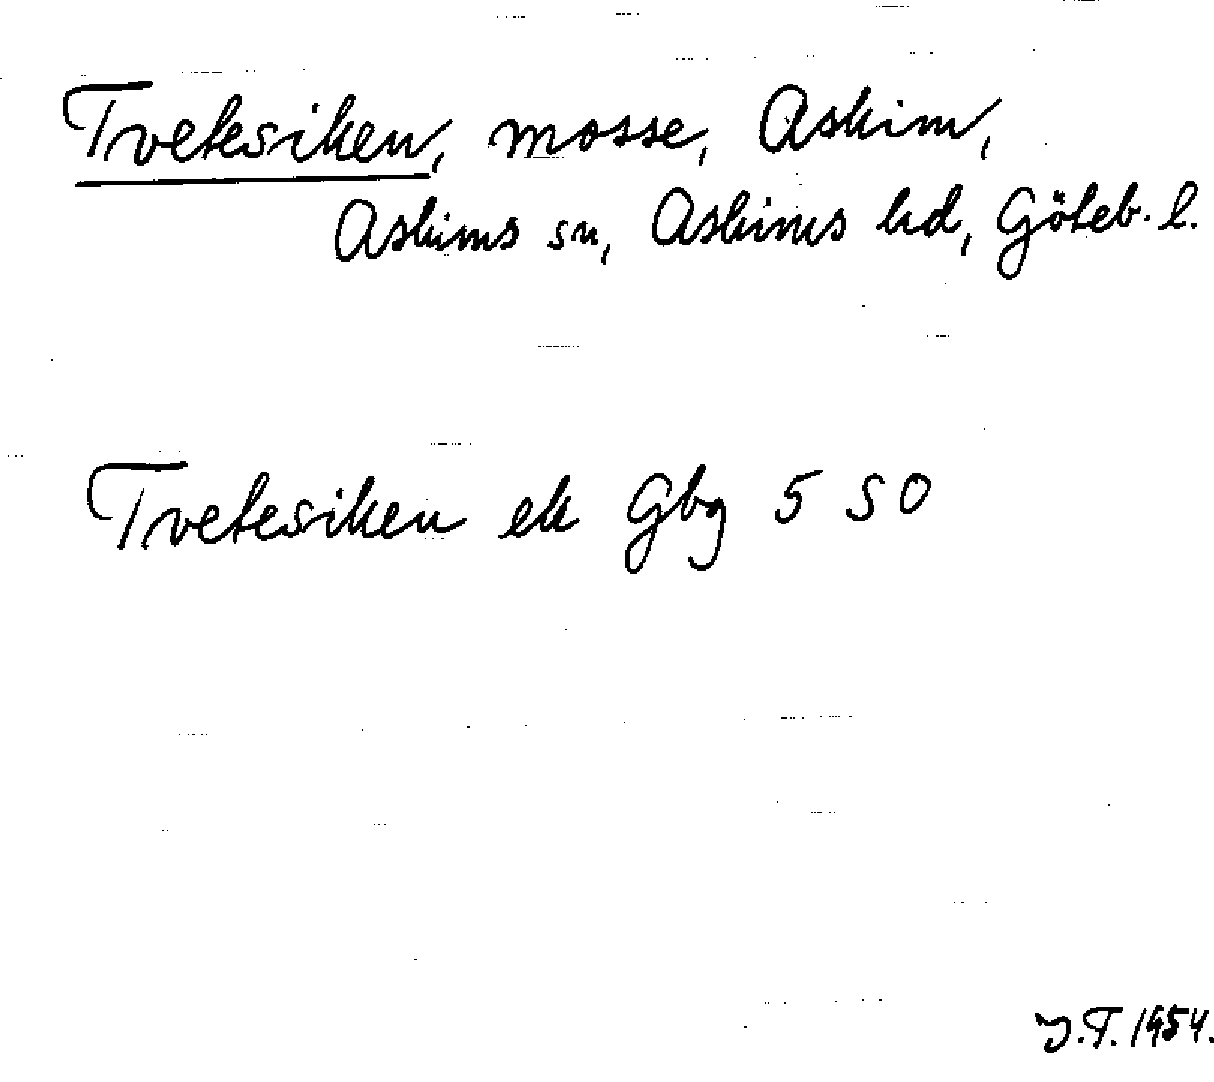 Tvetesiken, mosse, Askim,
Askims sn, Askims hd, Göteb. l.
Tvetesiken ek Gbg 5 SO
J.T. 1954.